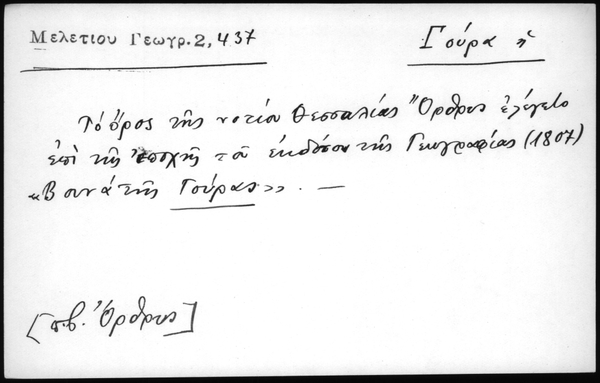 Μελετίου Γεωγρ. 2, 437
Γούρα ἡ
Τὸ ὄρος τῆς νοτίου Θεσσαλίας Ὄρθρυς ἐλέγετο
ἐπὶ τῆς ἐποχῆς τοῦ ἐκδόσου τῆς Γεωγραφίας (1807)
«Βουνὰ τῆς Γούρας». —
[π.β. Ὄρθρυς]